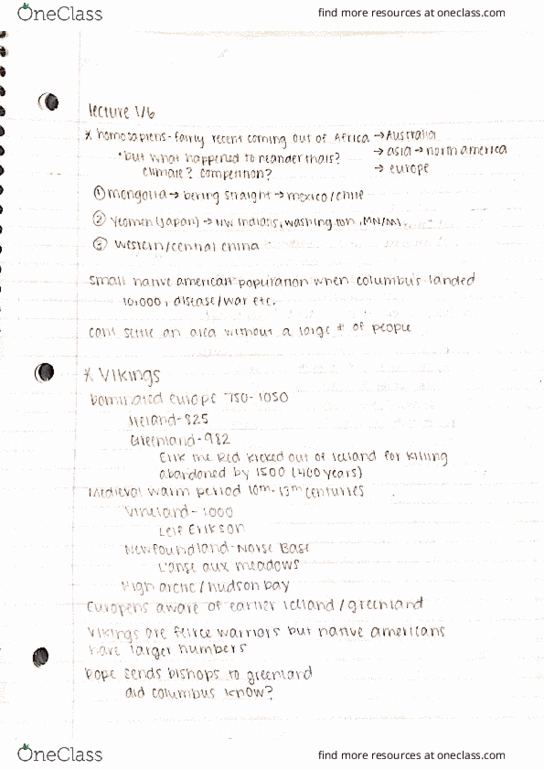 OneClass
find more resources at oneclass.com
lecture 1/6
* homosapiens - fairly recent coming out of Africa → Australia
*but what happened to neanderthals? → asia → north america
climate? competition? → europe
① mongolia → bering straight → mexico/chile
② Yeomen (Japan) → NW Indians, washington, MN/
③ western/central china
small native american population when columbus landed
10,000, disease/war etc.
cant settle an area without a large # of people
* Vikings
Dominated europe 750-1050
-825
Greenland-982
Erik the Red kicked out of Iceland for killing
abandoned by 1500 (400 years)
Medieval warm period 10th-13th centuries
Vineland-1000
Leif Erikson
Newfoundland-Norse Base
L'anse aux meadows
High arctic/hudson bay
Europens aware of earlier Iceland/greenland
Vikings are feirce warriors but native americans
have larger numbers
pope sends bishops to greenland
did columbus know?
OneClass
find more resources at oneclass.com